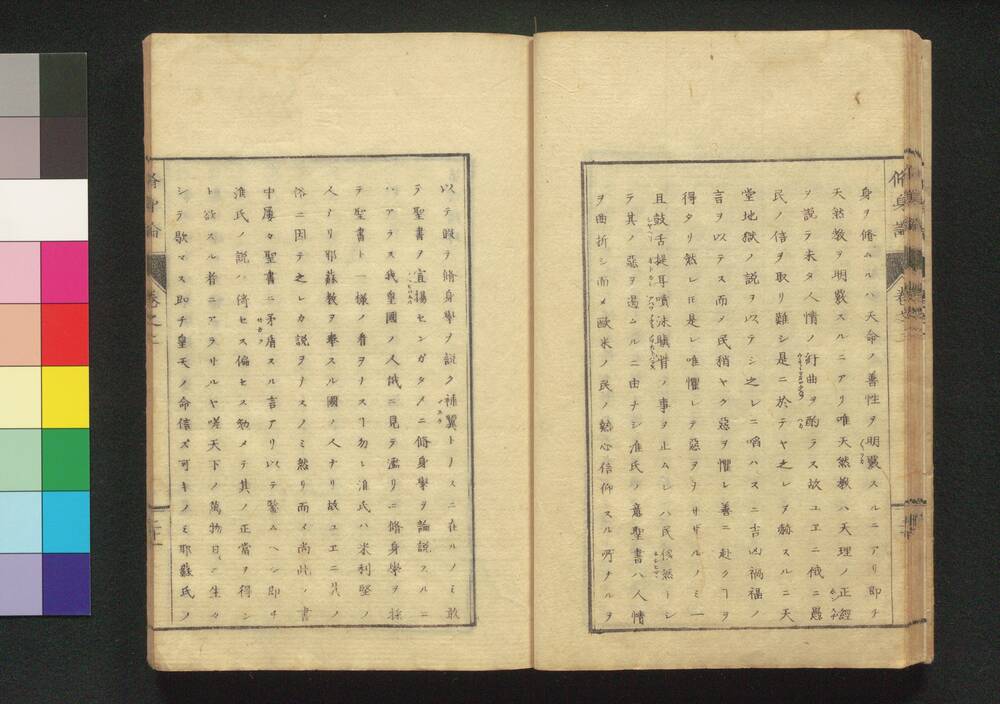 身ヲ脩ムルハ天命ノ善性ヲ明覈スルニアリ即チ
天然教ヲ明覈スルニアリ唯天然教ハ天理ノ正經
ヲ説ラ未タ人情ノ紆曲ヲ酌ラス故ユヱニ俄ニ愚
民ノ信ヲ取リ難シ是ニ於テヤ之レヲ赫スルニ天
堂地獄ノ説ヲ以テシ之レニ啗ハスニ吉凶禍福ノ
言ヲ以テス而メ民稍ヤク惡ヲ懼レ善ニ赴クヿヲ
得タリ然レ𪜈是レ唯懼レテ惡ヲナサヽルノミ一
且鼓舌提耳噴沫瞋眥ノ事ヲ止ムレハ民依然トシ
ラ其ノ惡ヲ過ムルニ由ナシ淮氏ノ意聖書ハ人情
ヲ曲折シ而メ歐米ノ民ノ熱心信仰スル所ナルヲ
以テ暇テ脩身學ヲ説ク補翼トナスニ在ルノミ敢
ラ聖書ヲ宣揚センガタメニ脩身學ヲ論説スルニ
ハアラス我皇國ノ人俄ニ見テ濫リニ脩身學ヲ採
テ聖書ト一樣ノ看ヲナスヿ勿レ淮氏ハ米利堅ノ
人ナリ耶蘇教ヲ奉スル國ノ人ナリ故ユヱニ其ノ
俗ニ因テ之レカ説ヲナスノミ然リ而メ尚此ノ書
中屡々聖書ニ矛盾スル言アリ以テ鑒ムヘシ即チ
淮氏ノ説ハ倚セス偏セス勉メテ其ノ正當ヲ得ン
ト欲スル者ニアラサルヤ嗟天下ノ萬物日ニ生々
シテ歇マス即チ皇天ノ命信ズ可キノミ耶蘇氏ノ
脩身論
卷之二